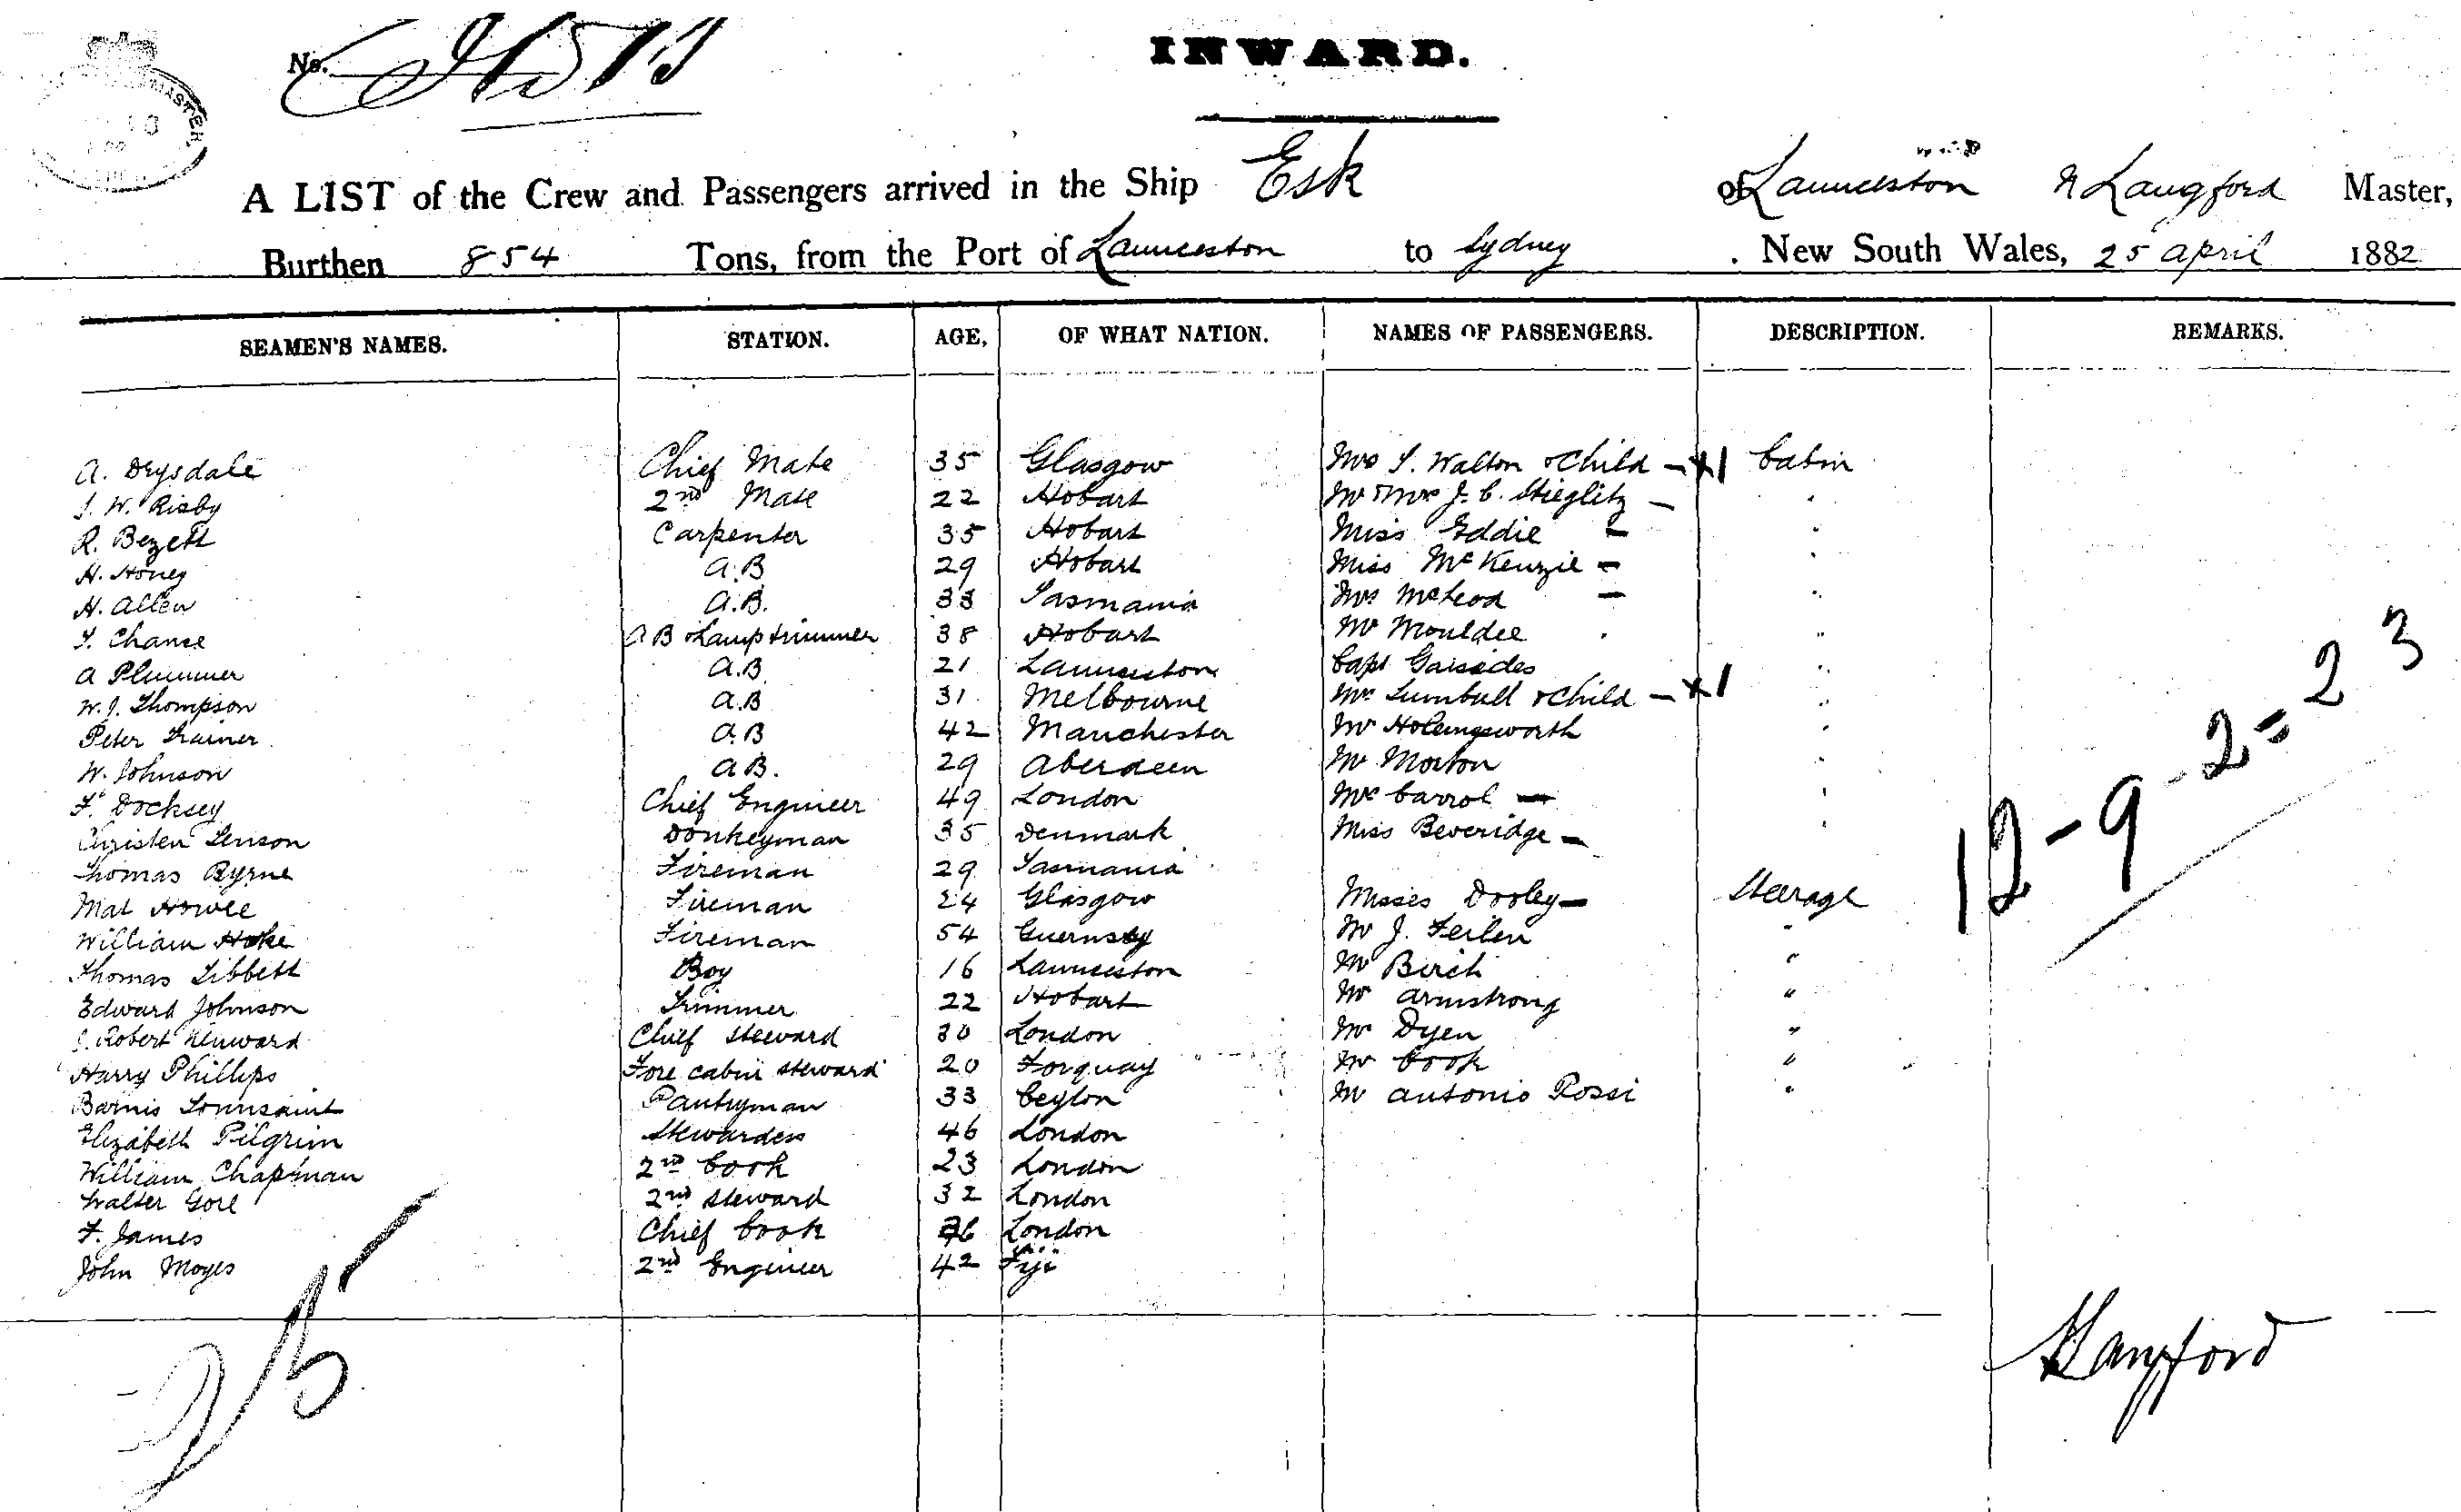 No.
INWARD.
A LIST of the Crew and Passengers arrived in the Ship Esk of Launceston Langford Master,
Burthen 854 Tons, from the Port of Launceston to Sydney . New South Wales, 25 April 1882
SEAMEN'S NAMES. STATION. AGE, OF WHAT NATION. NAMES OF PASSENGERS. DESCRIPTION. REMARKS.
A. Drysdale Chief Mate 35 Glasgow Mrs S. Walton & Child - x1 Cabin
J. W. Risby 2nd Mate 22 Hobart Mr & Mrs J. C. Stieglitz - "
R. Bezett Carpenter 35 Hobart Miss Eddie - "
H. Honey A.B 29 Hobart Miss McKenzie - "
H. Allen A.B. 33 Tasmania Mrs McLeod - "
T. Chance A B & Lamp trimmer 38 Hobart Mr "
A Plummer A.B. 21 Launceston Capt "
W. J. Thompson A.B 31 Melbourne & Child - x1 "
Peter A.B 42 Manchester Mr Hollingsworth "
W. Johnson A B. 29 Aberdeen Mr Morton "
F. Docksey Chief Engineer 49 London Mrs Carrol - "
Christen Donkeyman 35 Denmark Miss Beveridge - "
Thomas Byrne Fireman 29 Tasmania
Mat Fireman 24 Glasgow Misses Dooley - Steerage
William Fireman 54 Guernsey Mr J. "
Thomas Tibbett Boy 16 Launceston Mr Birch "
Edward Johnson Trimmer 22 Hobart Mr Armstrong "
J. Robert Kenward Chief Steward 30 London Mr Dyen "
Harry Phillips Fore cabin steward 20 Torquay Mr Cook "
Pantryman 33 Ceylon Mr Antonio Rossi "
Elizabeth Pilgrim Stewardess 46 London
William Chapman 2nd Cook 23 London
Walter Gore 2nd Steward 32 London
F. James Chief Cook London
John Moyes 2nd Engineer 42 Fiji
12 - 9 - 2 = 23
25
Langford